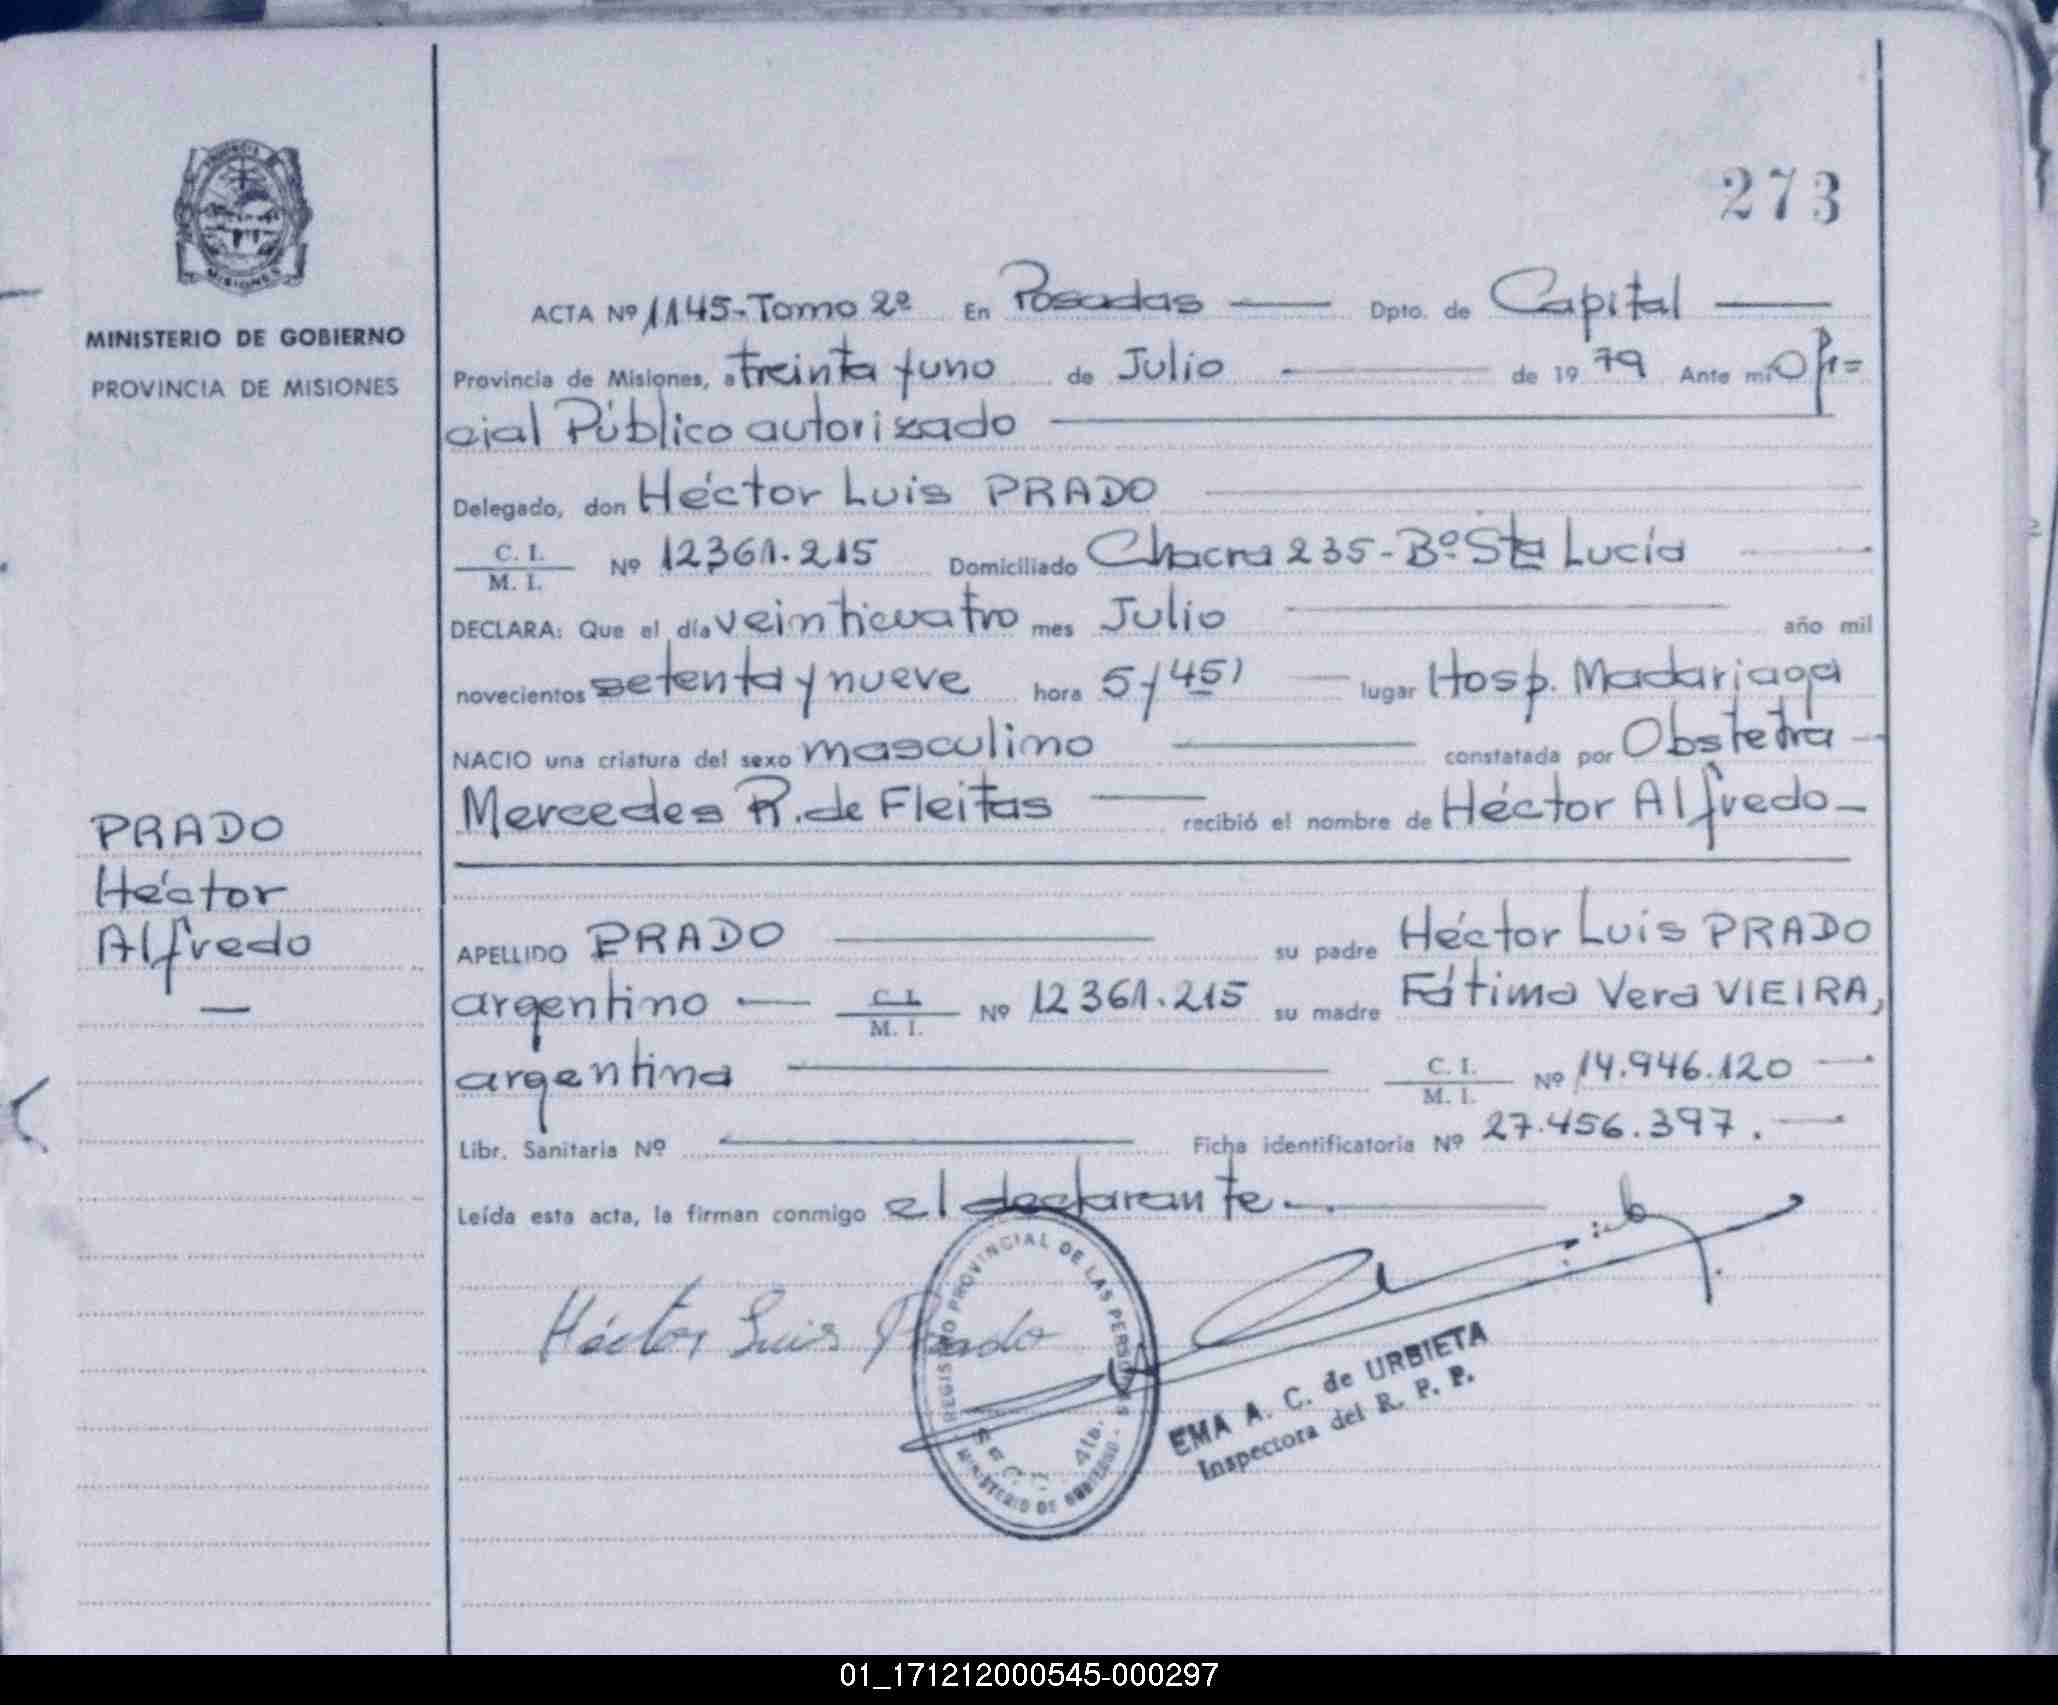 273
PROVINCIA DE
MISIONES
MINISTERIO DE GOBIERNO
PROVINCIA DE MISIONES
ACTA Nº 1145-Tomo 2º En Posadas Dpto. de Capital
Provincia de Misiones, a treinta y uno de Julio de 1979 Ante mi Ofi=
cial Público autorizado
Delegado, don Héctor Luis PRADO
C. I.
M. I. Nº 12361.215 Domiciliado Chacra 235-Bº Sta Lucía
DECLARA: Que el día veinticuatro mes Julio año mil
novecientos setenta y nueve hora 5 y 45' lugar Hosp. Madariaga
NACIO una criatura del sexo masculino constatada por Obstetra
Mercedes R. de Fleitas recibió el nombre de Héctor Alfredo
PRADO
Héctor
Alfredo
APELLIDO PRADO su padre Héctor Luis PRADO
argentino C. I.
M. I. Nº 12361.215 su madre Fátima Vera VIEIRA,
argentina C. I.
M. I. Nº 14.946.120
Libr. Sanitaria Nº Ficha identificatoria Nº 27.456.397.
Leída esta acta, la firman conmigo el declarante.
Héctor Luis Prado
REGISTRO PROVINCIAL DE LAS PERSONAS
MINISTERIO DE GOBIERNO
EMA A. C. de URBIETA
Inspectora del R. P. P.
01_171212000545-000297